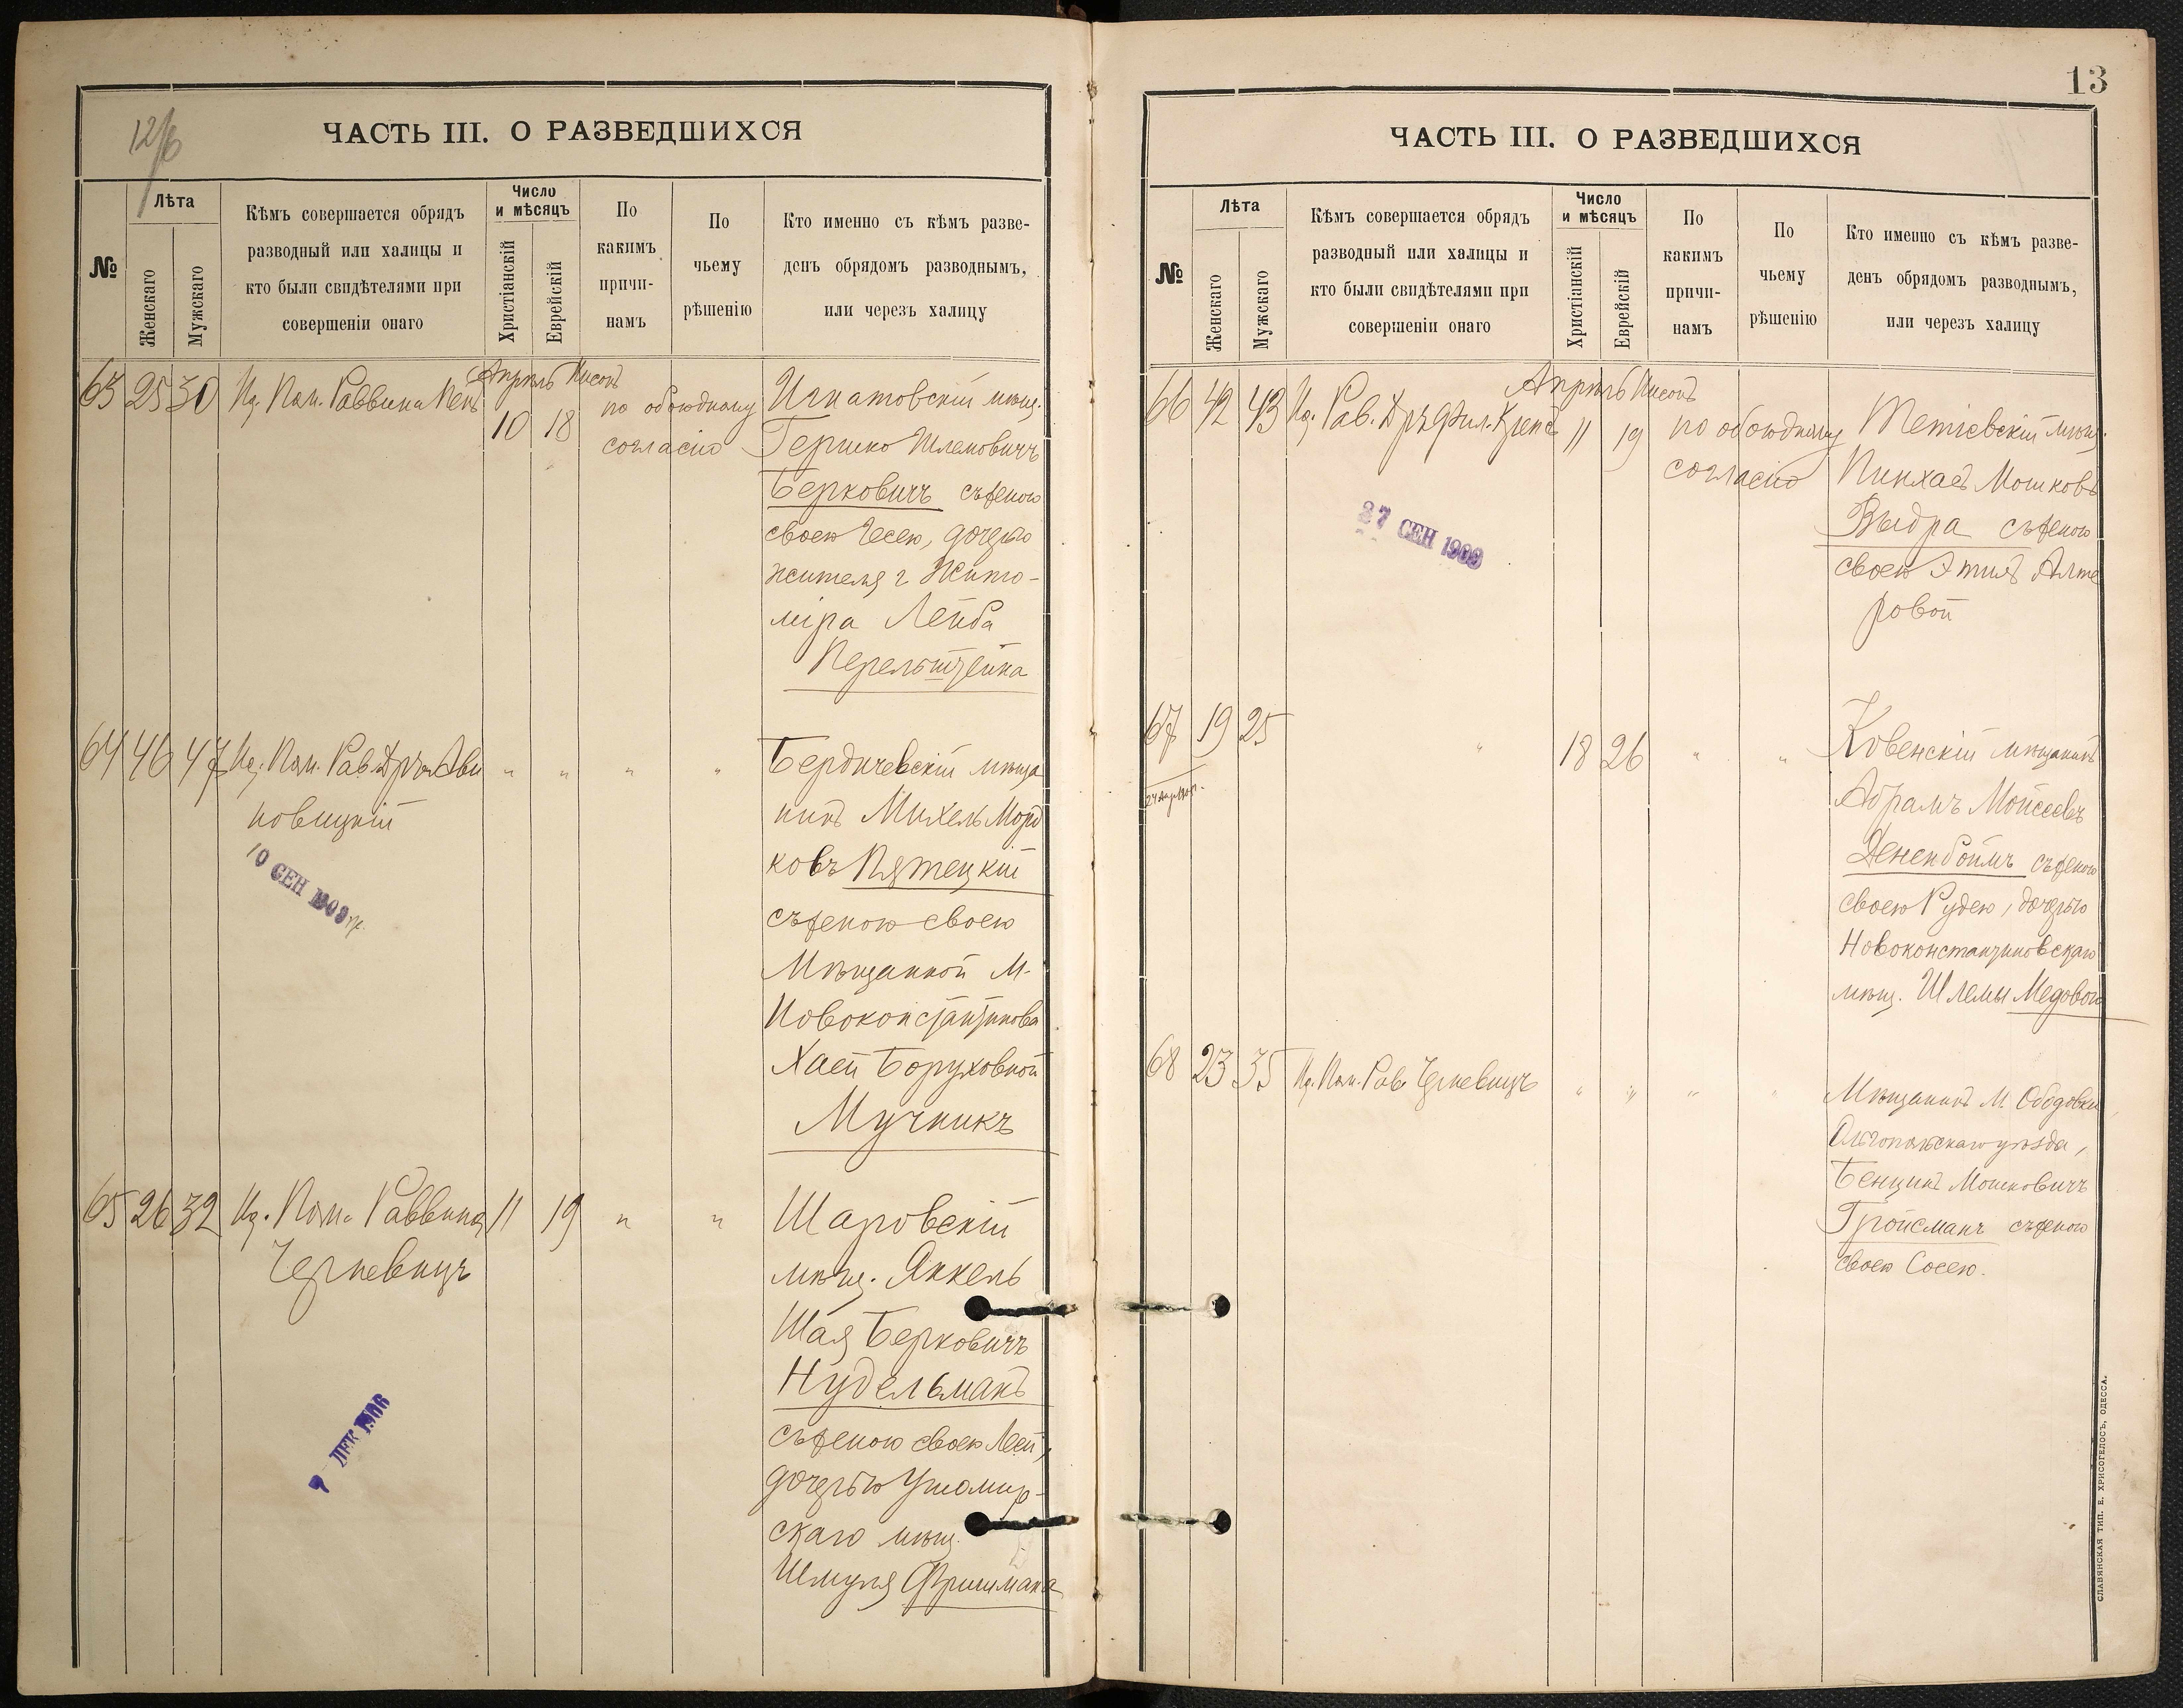 12/6
ЧАСТЬ III. О РАЗВЕДШИХСЯ
№
Лѣта
Женскаго
Мужскаго
Кѣмъ совершается обрядъ
разводный или халицы и
кто были свидѣтелями при
совершеніи онаго
Число
и мѣсяцъ
Христіанскій
Еврейскій
По
какимъ
причи-
намъ
По
чьему
рѣшенію
Кто именно съ кѣмъ разве-
денъ обрядомъ разводнымъ,
или черезъ халицу
63 25 30 Пом. Раввина
Апрѣль Нисонъ
10 18
по обоюдному
согласію
Игнатовскій мѣщ.
Гершко Шлемовичъ
Берковичъ съ женою
своею Чесею, дочерью
жителя г Жито-
міра Лейба
Перельштейна
64 46 47 Пом. Рав. Д-ръ Ави
новицкій
" " " "
10 СЕН 1909
Бердичевскій мѣща
нинъ Михель Морд
ковъ Пятецкій
съ женою своею
Мѣщанкой м.
Новоконстантинова
Хаей Боруховной
Мучникъ
65 26 32 Пом. Раввина
Черневицъ
11 19 " "
7 ДЕК 1906
Шаровскій
мѣщ. Янкель
Шая Берковичъ
Нудельманъ
съ женою своею Леей,
дочерью Ушомир-
скаго мѣщ.
Шмуля Фришмана
13
ЧАСТЬ III. О РАЗВЕДШИХСЯ
№
Лѣта
Женскаго
Мужскаго
Кѣмъ совершается обрядъ
разводный или халицы и
кто были свидѣтелями при
совершеніи онаго
Число
и мѣсяцъ
Христіанскій
Еврейскій
По
какимъ
причи-
намъ
По
чьему
рѣшенію
Кто именно съ кѣмъ разве-
денъ обрядомъ разводнымъ,
или черезъ халицу
66 42 43 Рав. Д-ръ Фил. Крепсъ
Апрѣль Нисонъ
11 19
по обоюдному
согласію
27 СЕН 1909
Тетіевскій мѣщ.
Пинхасъ Мошковъ
Выдра съ женою
своею Этией Алте
ровой
67 19 25 " 18 26 " "
Ковенскій мѣщанинъ
Абрамъ Мойсеевъ
Дененбоймъ съ женою
своею Рудею, дочерью
Новоконстантиновскаго
мѣщ. Шлемы Медового
68 23 35 Пом. Рав. Черневицъ " " " "
Мѣщанинъ м. Ободовки
Ольгопольскаго уѣзда,
Бенціинъ Мошковичъ
Гройсманъ съ женою
своею Сосею.
СЛАВЯНСКАЯ ТИП. Е. ХРИСОГЕЛОСЪ, ОДЕССА.